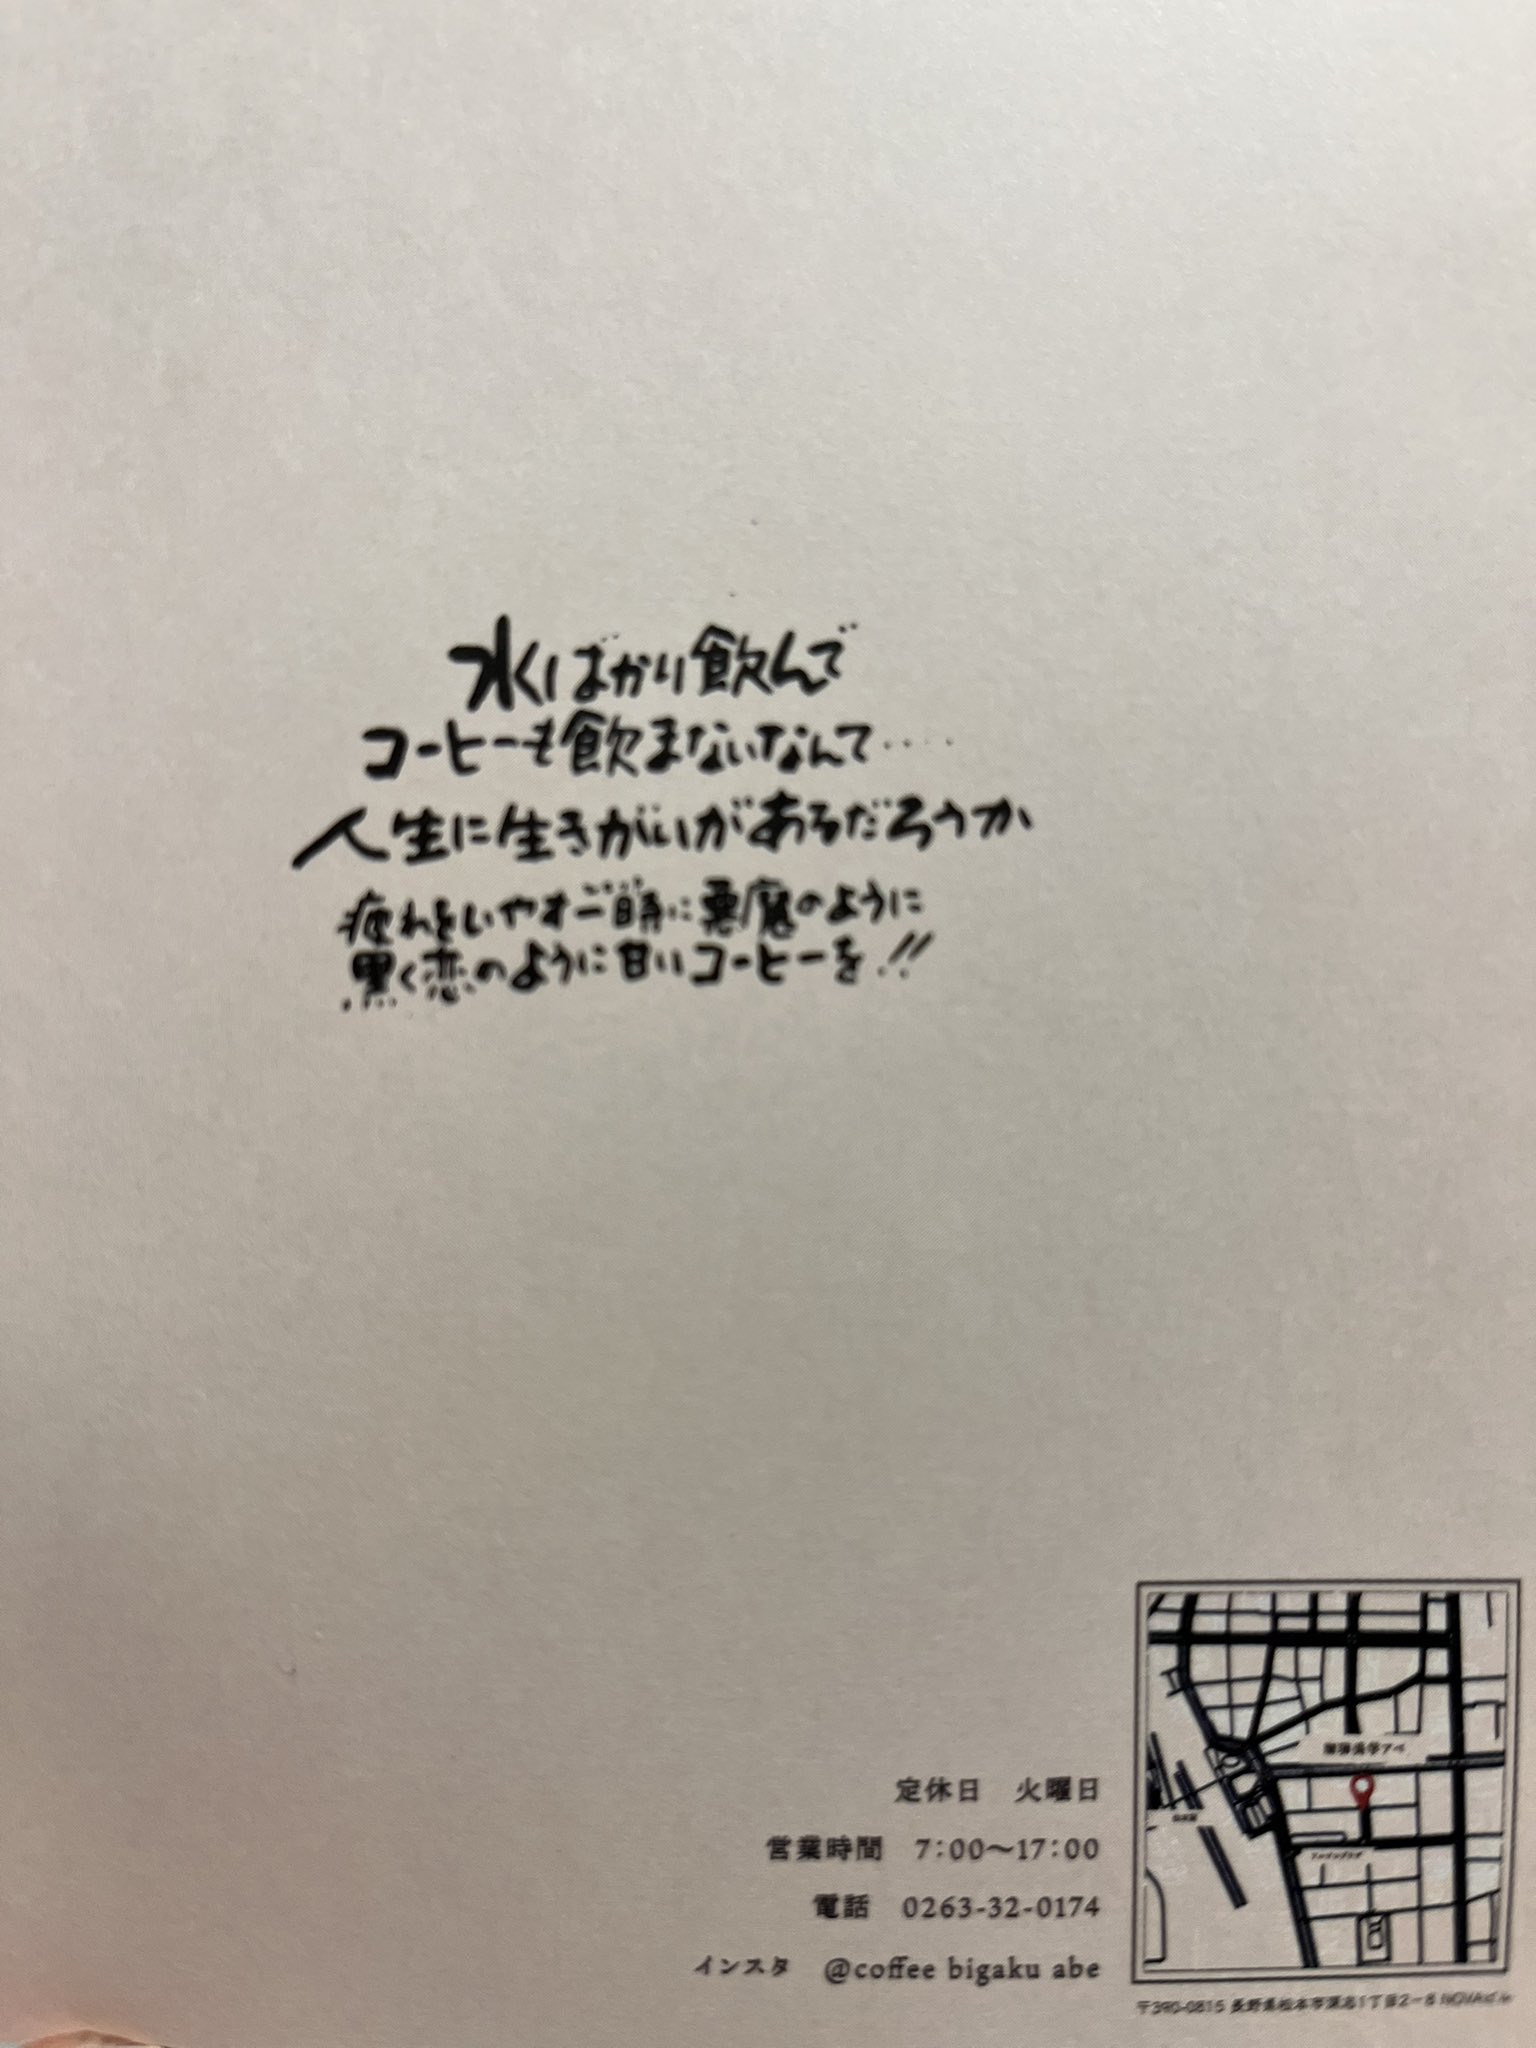 水ばかり飲んで
コーヒーも飲まないなんて‥‥
人生に生きがいがあるだろうか
疲れをいやすご時に悪魔のように
黒く恋のように甘いコーヒーを!!
珈琲美学アベ
定休日　火曜日
営業時間　7:00〜17:00
電話　0263-32-0174
インスタ　@coffee bigaku abe
〒390-0815 長野県松本市深志1丁目2-8 NOVAビル